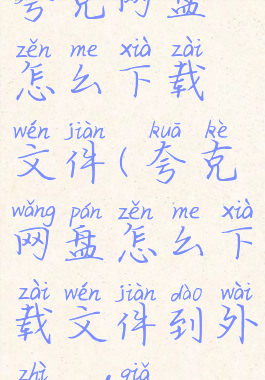 夸克网盘
zěn me xià zài
怎么下载
wén jiàn kuā kè
文件(夸克
wǎng pán zěn me xià
网盘怎么下
zài wén jiàn dào wài
载文件到外